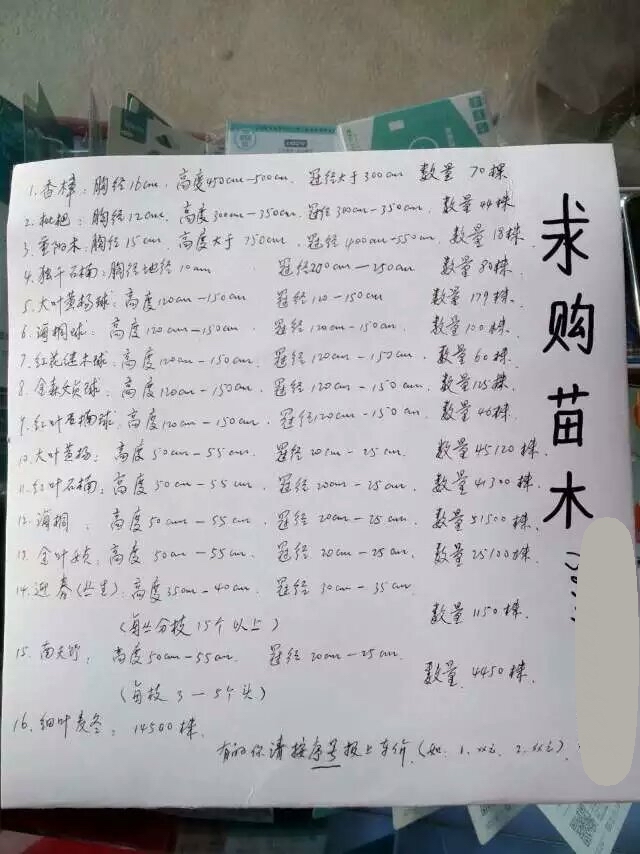 求购苗木
1.香樟:胸径16cm.高度450cm-500cm.冠径大于300cm 数量 70棵
2.枇杷:胸径12cm.高度300cm-350cm.冠径300cm-350cm.数量44株.
3.重阳木:胸径15cm.高度大于750cm.冠径400cm-550cm.数量18株.
4.独干石楠:胸径地径10cm 冠径200cm-250cm 数量80株.
5.大叶黄杨球:高度120cm-150cm 冠径120-150cm 数量179株.
6.海桐球:高度120cm-150cm.冠径120cm-150cm.数量100株.
7.红花继木球:高度120cm-150cm 冠径120cm-150cm.数量60株.
8.金森女贞球:高度120cm-150cm.冠径120cm-150cm 数量125株.
9.红叶石楠球:高度120cm-150cm.冠径120cm-150cm 数量46株.
10.大叶黄杨:高度50cm-55cm.冠径20cm-25cm.数量45120株.
11.红叶石楠:高度50cm-55cm.冠径20cm-25cm.数量41300株.
12.海桐.高度50cm-55cm.冠径20cm-25cm 数量51500株.
13.金叶女贞:高度50cm-55cm.冠径20cm-25cm.数量25100株.
14.迎春(丛生):高度35cm-40cm.冠径30cm-35cm
数量1150株.
(每丛分枝15个以上)
15.南天竹:高度50cm-55cm.冠径20cm-25cm.
数量.4450株
(每枝3-5个头)
16.细叶麦冬:14500株.
有的你请按序号报上车价.(如.1.xx元.2.xx元).